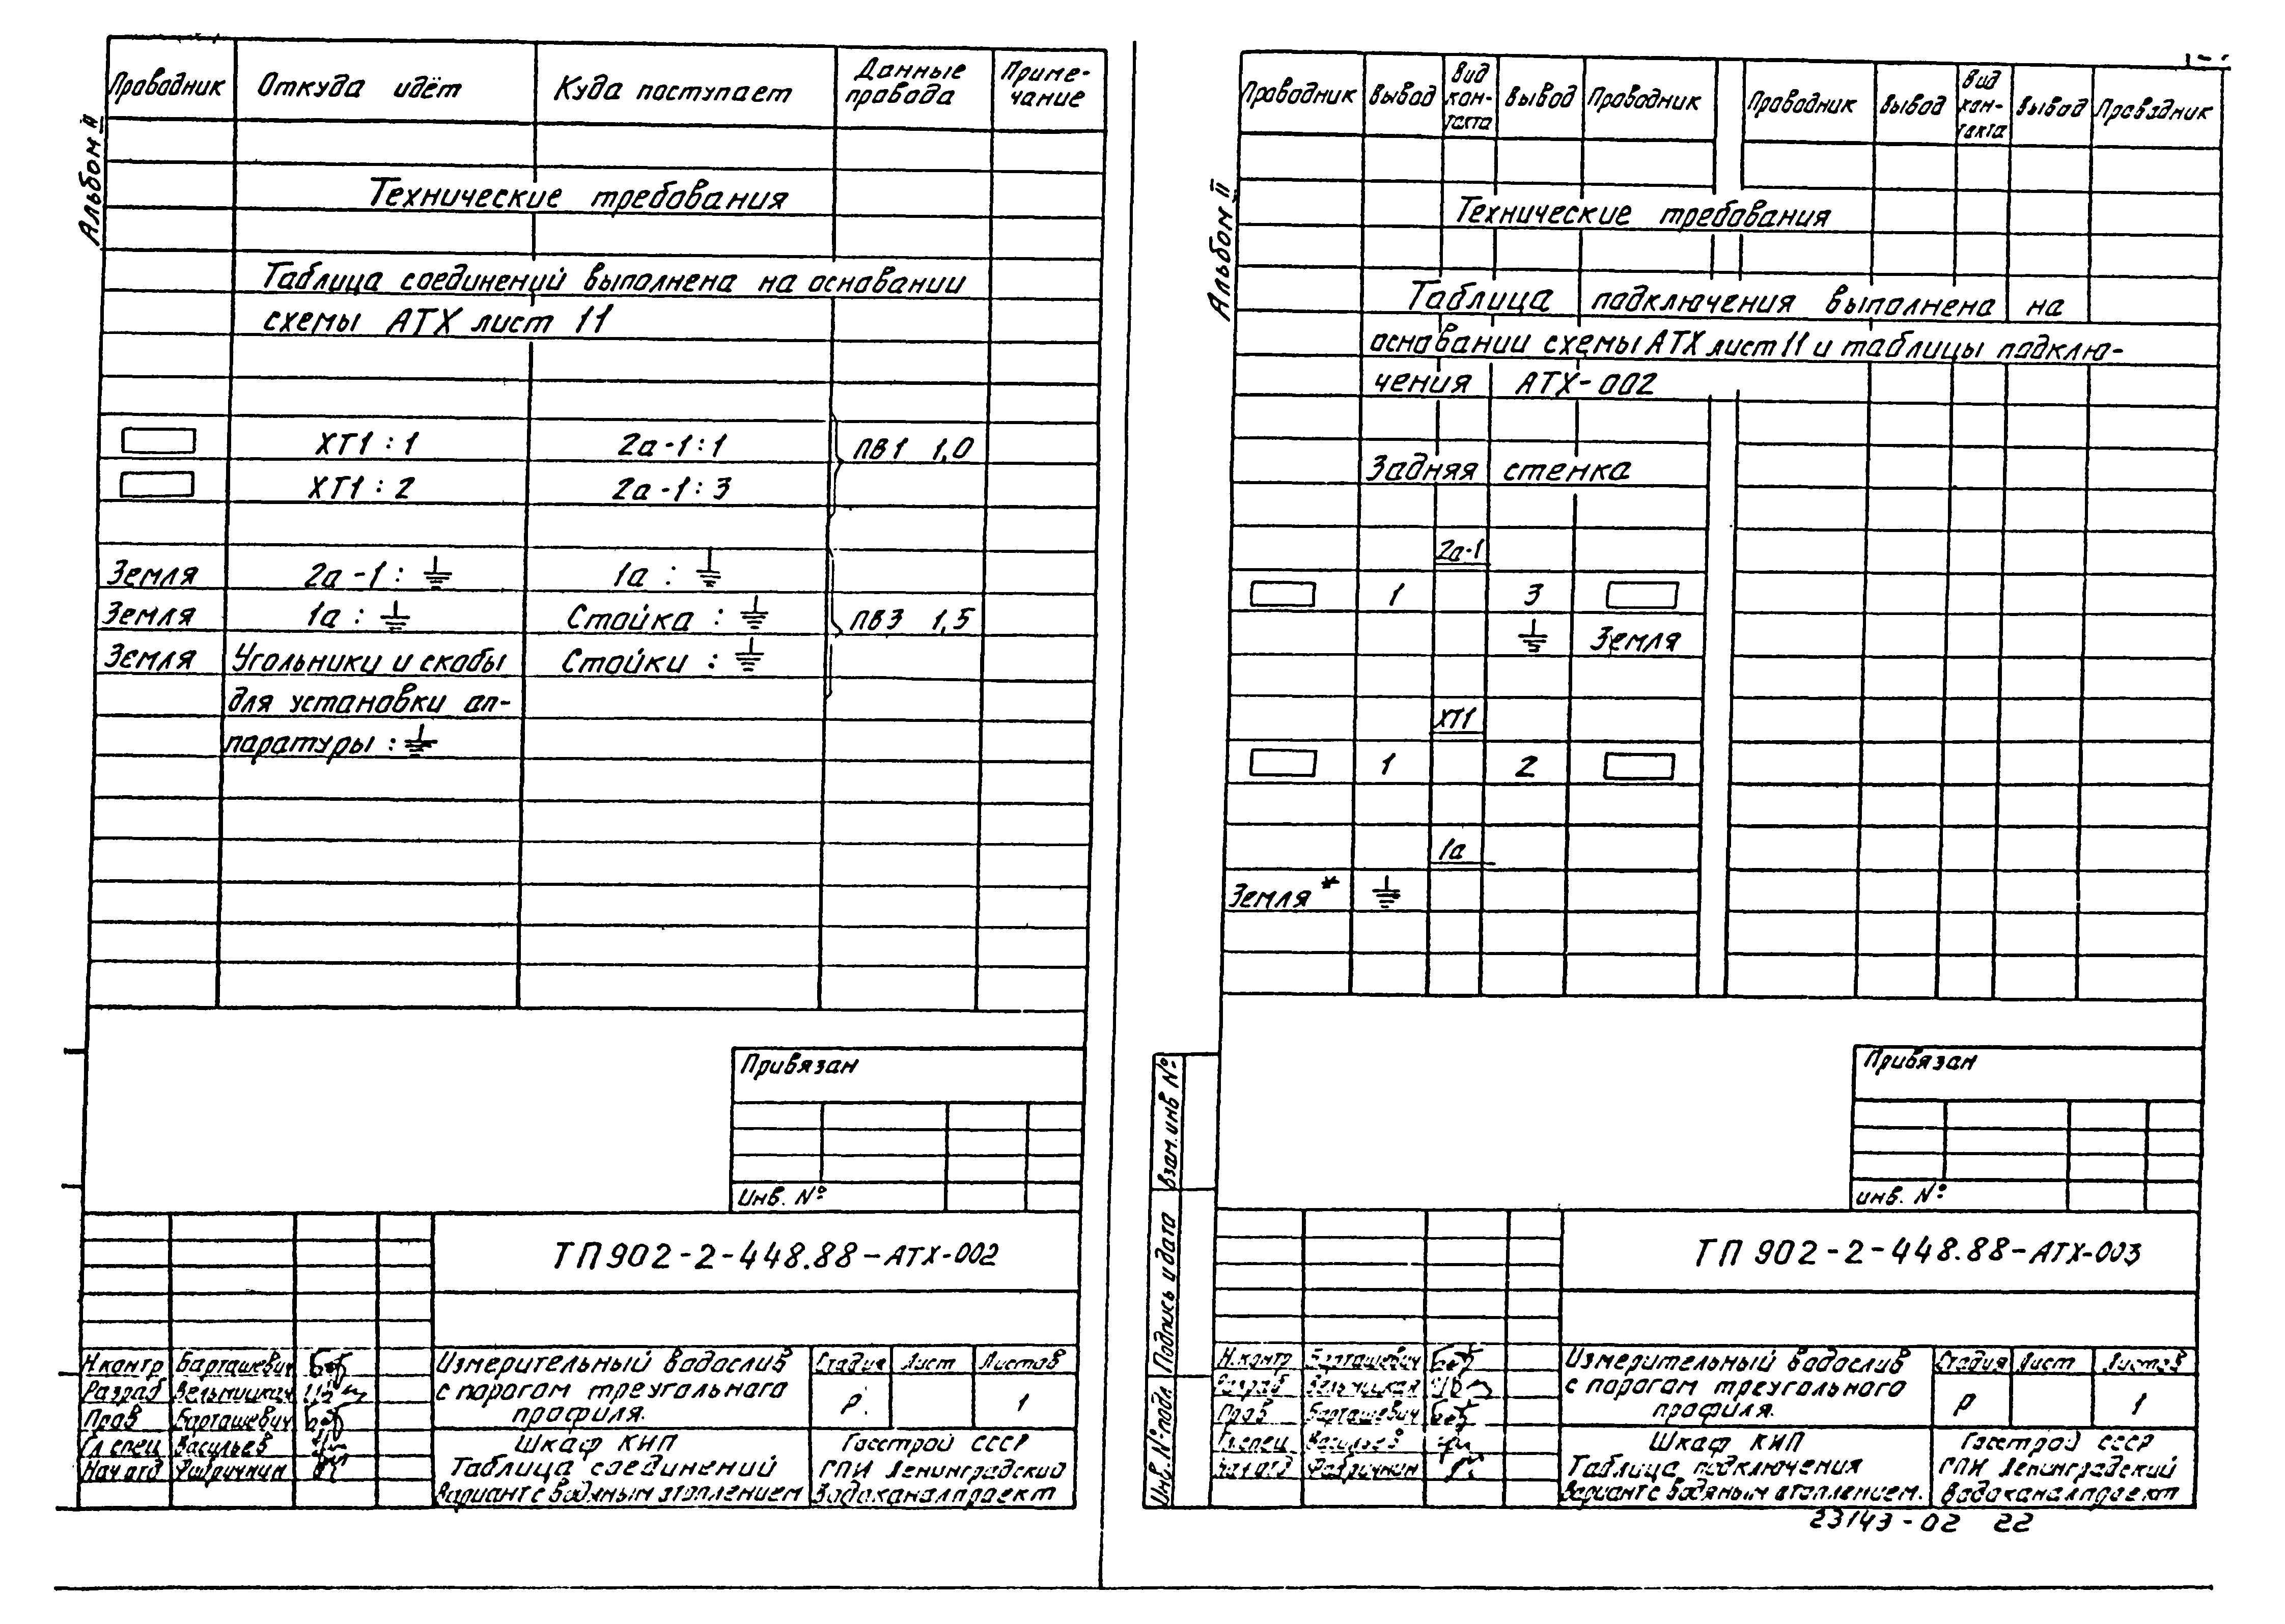 Альбом II
Проводник Откуда идёт Куда поступает Данные провода Приме-чание
Технические требования
Таблица соединений выполнена на основании
схемы АТХ лист 11
ХТ1 : 1 2а-1 : 1 ПВ1 1,0
ХТ1 : 2 2а-1 : 3
Земля 2а-1 : ⏚ 1а : ⏚
Земля 1а : ⏚ Стойка : ⏚ ПВ3 1,5
Земля Угольники и скобы Стойки : ⏚
для установки ап-
паратуры : ⏚
Привязан
Инв. №
ТП 902-2-448.88-АТХ-002
Н.контр Барташевич
Разраб Вельницкая
Пров Барташевич
Гл.спец Васильев
Нач отд Фабричнин
Измерительный водослив
с порогом треугольного
профиля.
Стадия Лист Листов
Р. 1
Шкаф КИП
Таблица соединений
Вариант с водяным отоплением
Госстрой СССР
ГПИ Ленинградский
Водоканалпроект
Альбом II
Проводник Вывод Вид кон-такта Вывод Проводник Проводник Вывод Вид кон-такта Вывод Проводник
Технические требования
Таблица подключения выполнена на
основании схемы АТХ лист 11 и таблицы подклю-
чения АТХ-002
Задняя стенка
2а-1
1 3
⏚ Земля
ХТ1
1 2
1а
Земля * ⏚
Привязан
инв. №
Взам.инв №
Подпись и дата
Инв.№ подл
ТП 902-2-448.88-АТХ-003
Н.контр Барташевич
Разраб Вельницкая
Пров Барташевич
Гл.спец Васильев
Нач отд Фабричнин
Измерительный водослив
с порогом треугольного
профиля.
Стадия Лист Листов
Р 1
Шкаф КИП
Таблица подключения
Вариант с водяным отоплением.
Госстрой СССР
ГПИ Ленинградский
Водоканалпроект
23143-02 22